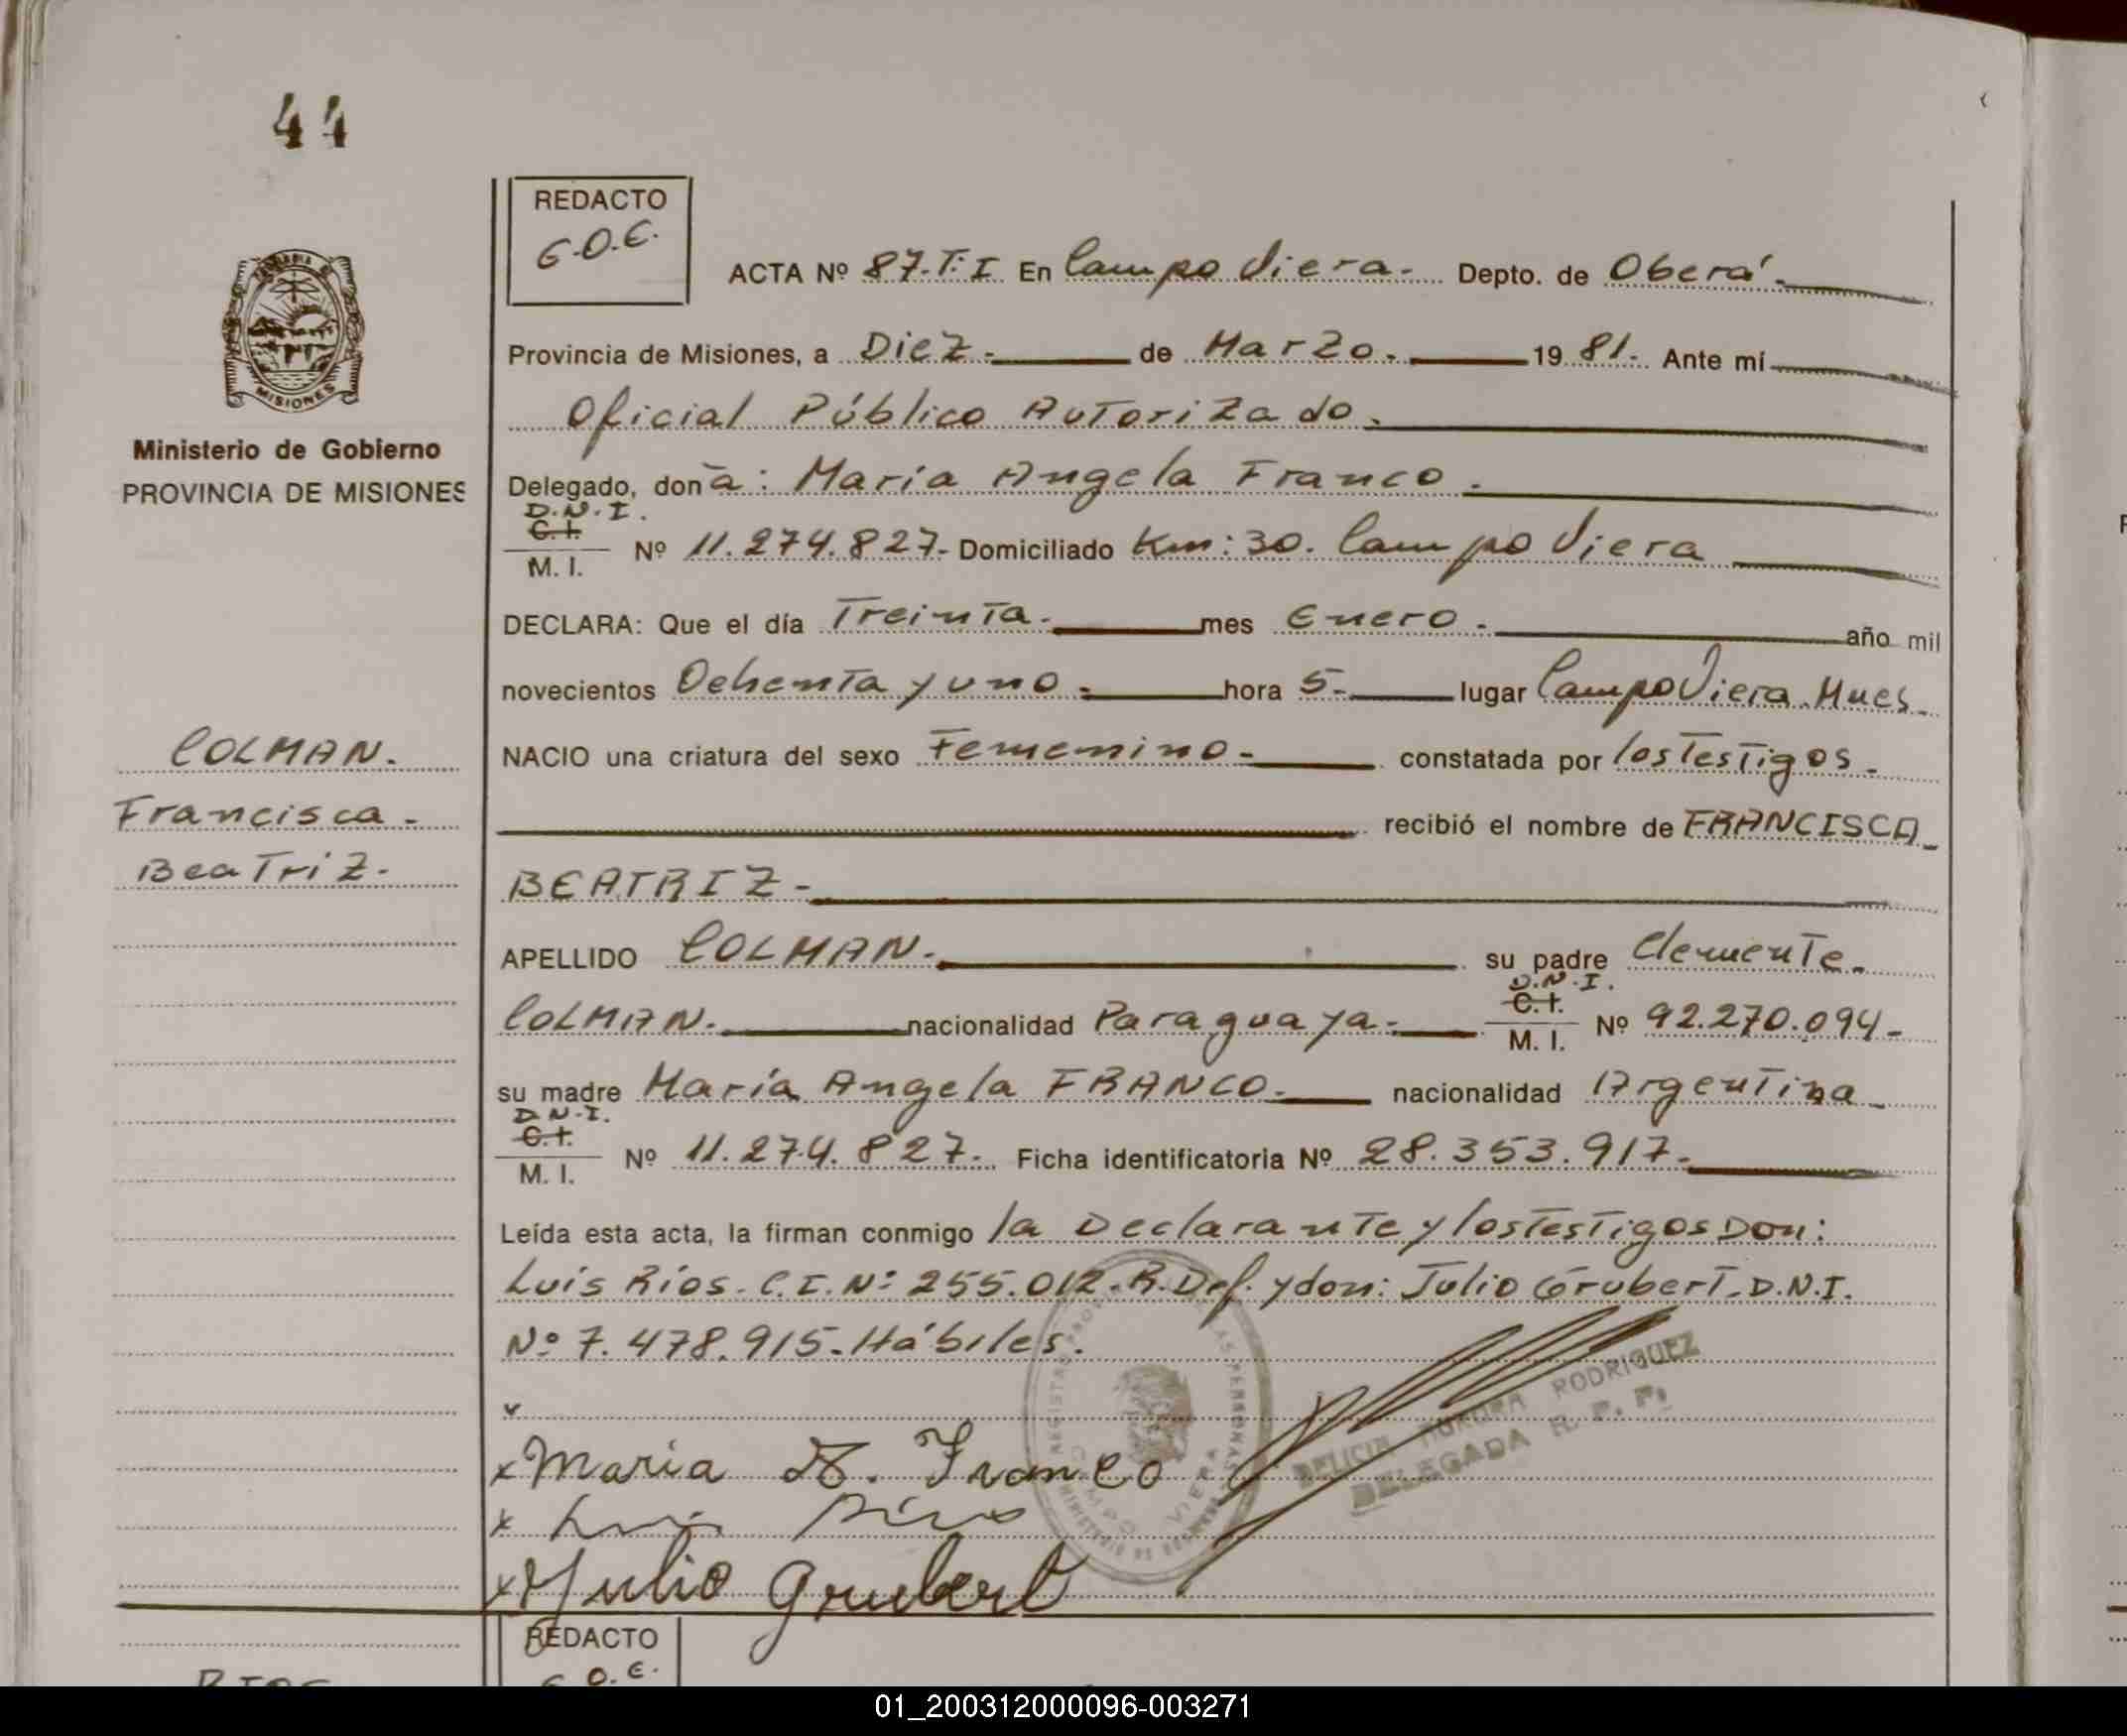 44
REDACTO
G.O.E.
ACTA Nº 87.T:I En Campo Viera.- Depto. de Oberá.-
Provincia de Misiones, a Diez.- de Marzo.- 1981.- Ante mí
Oficial Público Autorizado.
MISIONES
Ministerio de Gobierno
PROVINCIA DE MISIONES
Delegado, doña: María Angela Franco.
D.N.I.
C.I.
M. I. Nº 11.274.827.- Domiciliado Km: 30. Campo Viera
DECLARA: Que el día Treinta.- mes Enero.- año mil
novecientos Ochenta y uno.- hora 5.- lugar Campo Viera.Mnes.
COLMAN.
Francisca.-
Beatriz.-
NACIO una criatura del sexo Femenino- constatada por los Testigos.-
recibió el nombre de FRANCISCA
BEATRIZ-
APELLIDO COLMAN.- su padre Clemente.
D.N.I.
COLMAN.- nacionalidad Paraguaya.- C.I. M. I. Nº 92.270.094-
su madre María Angela FRANCO.- nacionalidad Argentina
D.N.I.
C.I.
M. I. Nº 11.274.827.- Ficha identificatoria Nº 28.353.917.-
Leída esta acta, la firman conmigo la Declarante y los Testigos Don:
Luis Ríos. C.I.Nº 255.012.R.Def. y don: Julio Grubert.D.N.I.
Nº 7.478.915.Hábiles.
AURORA RODRIGUEZ
DELEGADA R. P. P.
CAMPO VIERA
x María A. Franco
x Luis Ríos
x Julio Grubert
REDACTO
G.O.E.
01_200312000096-003271